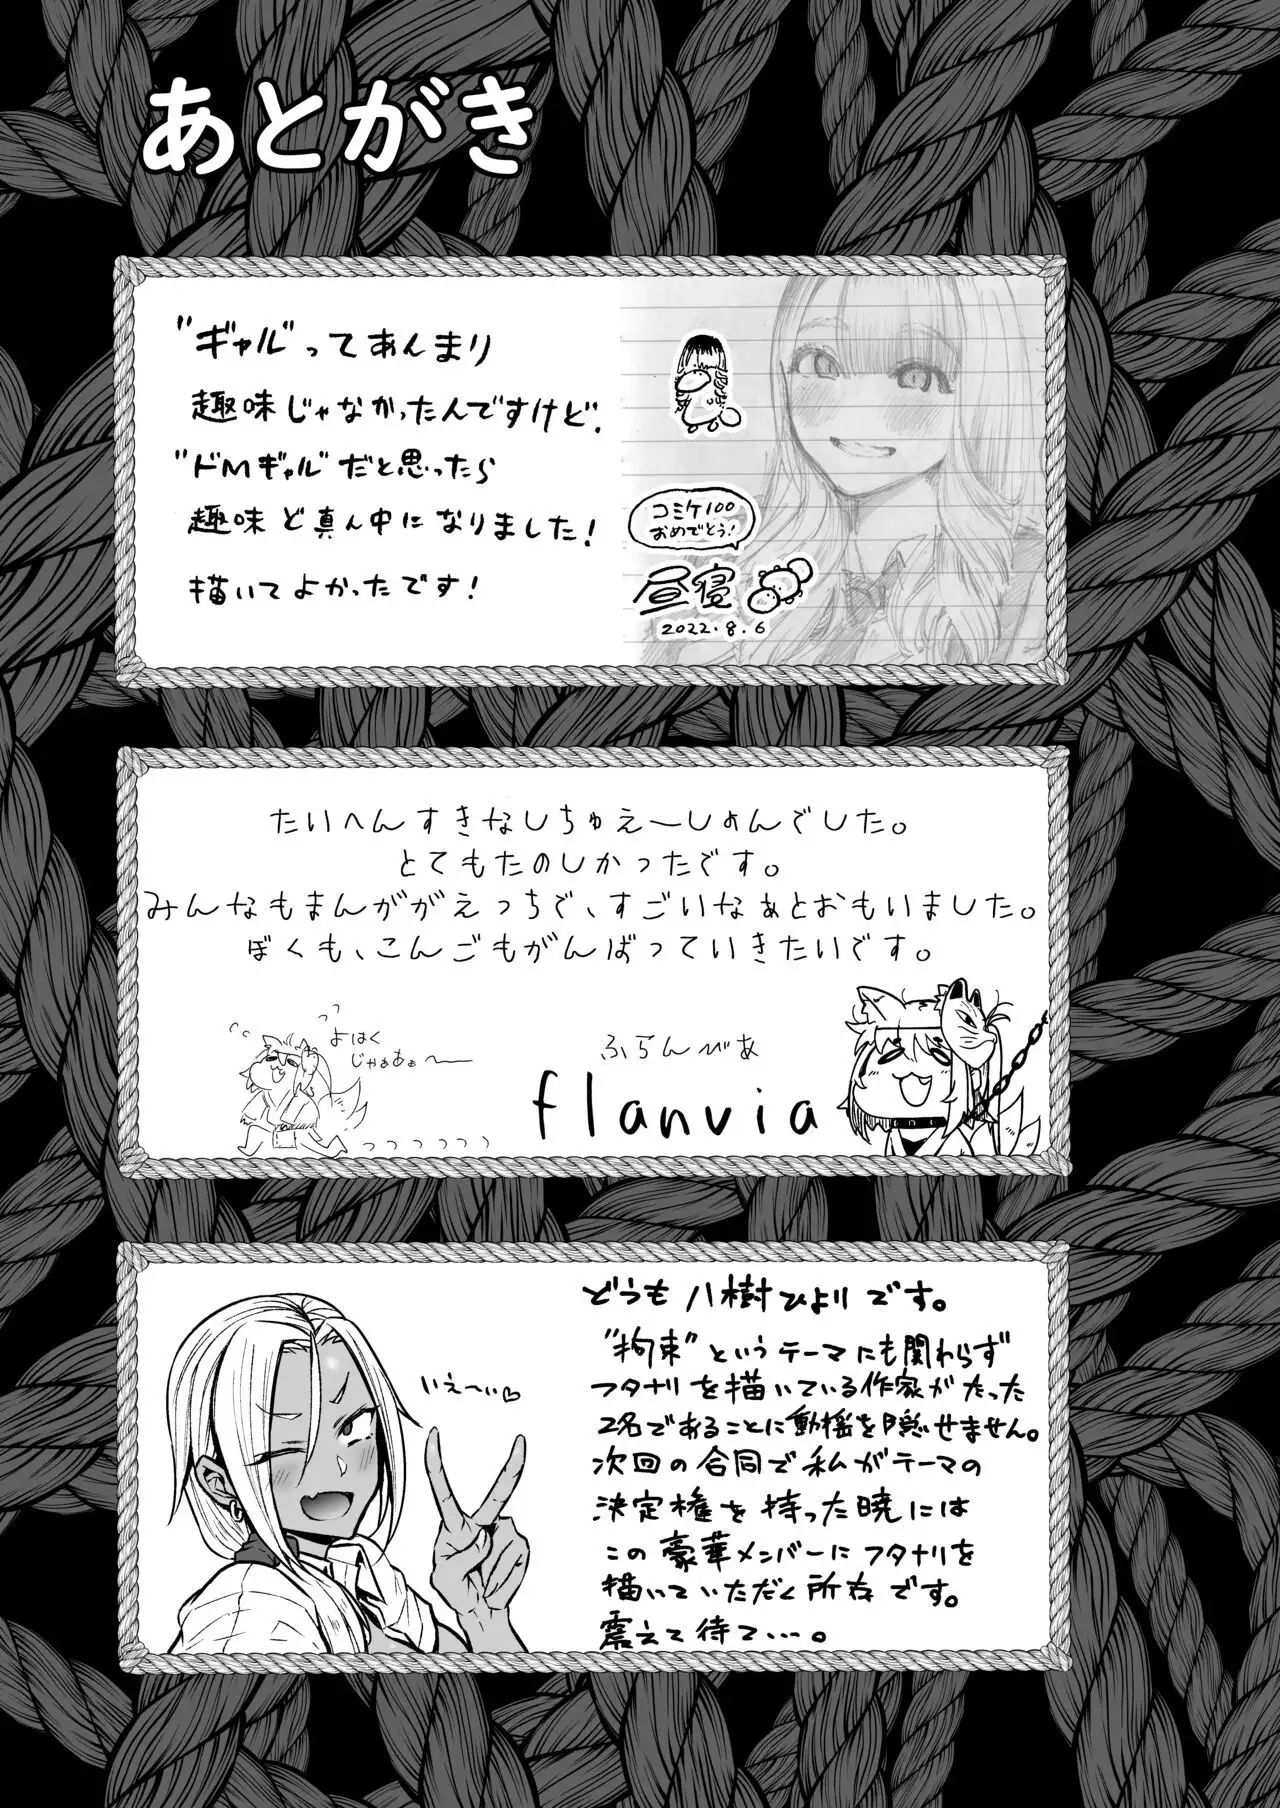 あとがき
"ギャル"ってあんまり
趣味じゃなかったんですけど、
"ドMギャル"だと思ったら
趣味ど真ん中になりました!
描いてよかったです!
コミケ100
おめでとう!
昼寝
2022.8.6
たいへんすきなしちゅえーしょんでした。
とてもたのしかったです。
みんなもまんががえっちで、すごいなぁとおもいました。
ぼくも、こんごもがんばっていきたいです。
よはく
じゃぁあぁ〜
っっっっっっ
ふらんびあ
flanvia
いえ〜い♡
どうも八樹ひよりです。
"拘束"というテーマにも関わらず
フタナリを描いている作家がたった
2名であることに動揺を隠せません。
次回の合同で私がテーマの
決定権を持った暁には
この豪華メンバーにフタナリを
描いていただく所存です。
震えて待て…。